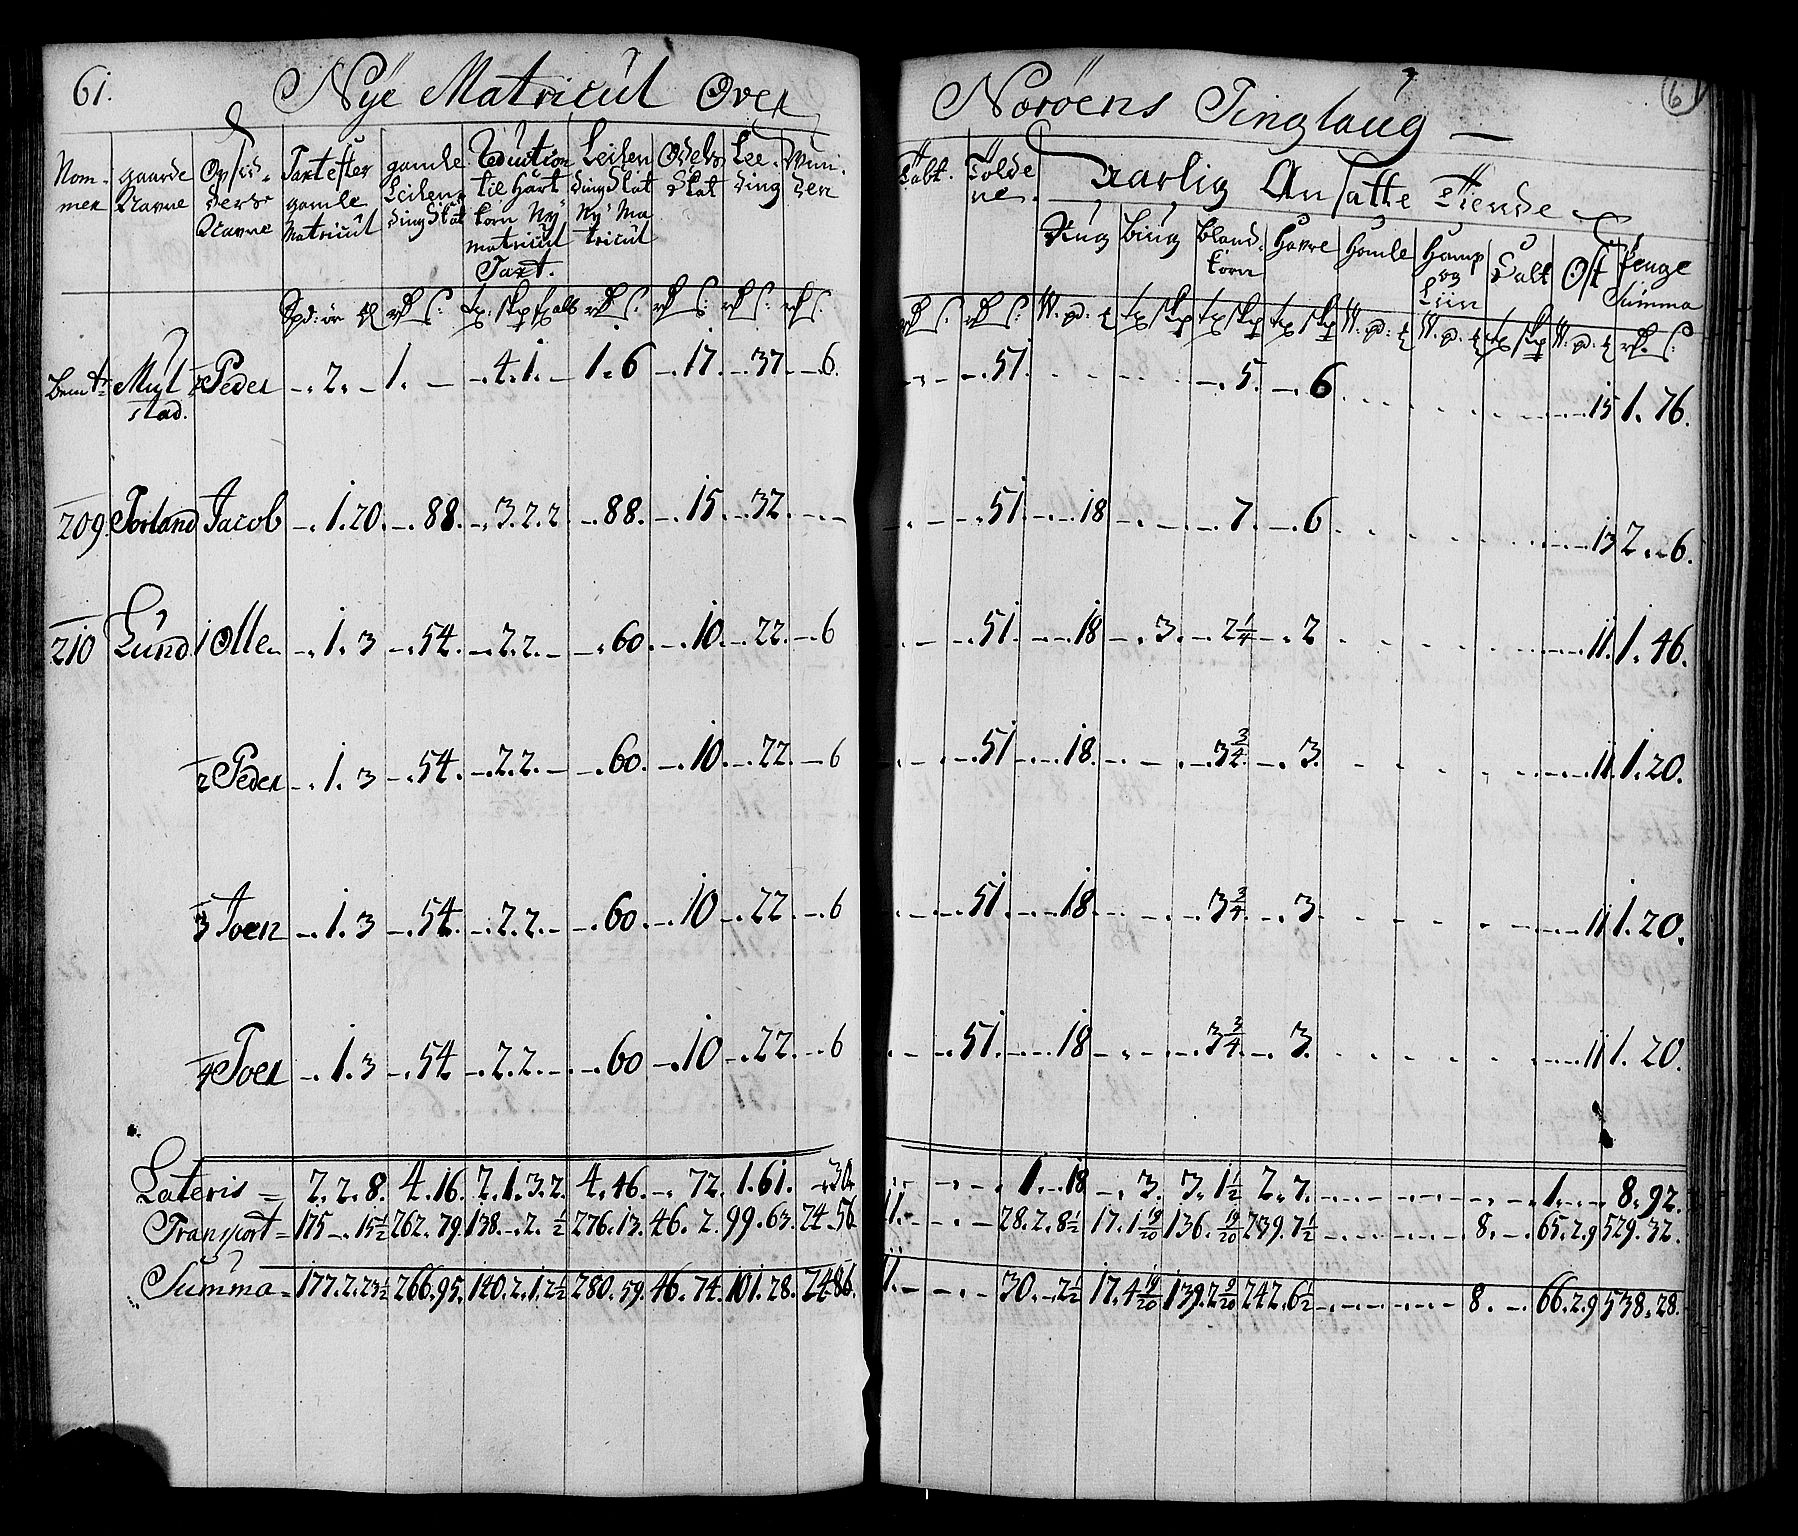 61. Nÿe Matricül Over Noroens Tinglaüg 61
Nom- mer | gaarde Navne | Opsid- ders Navne | Taxt efter gamle Matricül | gamle Leilen- dingskat | Reduction til Hart korn Nÿ matricül Taxt. | Leilen dingskat Nÿ Ma tricül | Odels Skat | Lee- ding
Salt. | Aarlig Ansatte Tiende
Rüg | Büig | Bland- korn | Havre | Homle | Hamp og Liin | Salt | Ost | Penge Summa
Myl stad. | 2 Peder | 2. | 1. | 4.1. | 1.6 | 17. | 37. | 6. | 51. | 5. | 6 | 15 | 1.76.
209 | Torland | Jacob | 1.20. | 88. | 3.2.2 | 88. | 15. | 32. | 51. | 18 | 7. | 6 | 13 | 2.6.
210 | Lünd | 1 Olle | 1.3 | 54. | 2.2. | 60. | 10. | 22. | 6 | 51. | 18 | 3. | 2 1/4 | 2 | 11. | 1.46.
2 Peder | 1.3 | 54. | 2.2. | 60. | 10. | 22. | 6 | 51 | 18. | 3 3/4 | 3. | 11 | 1.20.
3 Joen | 1.3 | 54. | 2.2. | 60. | 10 | 22. | 6 | 51. | 18. | 3 3/4 | 3. | 11 | 1.20.
4 Joen | 1.3 | 54 | 2.2. | 60 | 10 | 22. | 6 | 51. | 18 | 3 3/4 | 3. | 11 | 1.20.
Lateris | 7.2.8. | 4.16. | 2.1.3.2. | 4.46. | 72. | 1.61. | 30. | 1. 18 | 3. | 3. 1 1/2 | 2.7. | 1. | 8.92.
Transport | 175 15 1/2 | 262.79. | 138. 2. 1/2 | 276.13. | 46.2. | 99.63. | 24.56 | 28.2.8 1/2 | 17.1 19/20 | 136. 19/20 | 239.7 1/2 | 8. | 65.2.9 | 529.32.
Summa | 177.2.23 1/2 | 266.95. | 140.2.1.2 1/2 | 280.59. | 46.74. | 101.28. | 24.86. | 30. 2 1/2 | 17.4 19/20 | 139.2 9/20 | 242.6 1/2 | 8. | 66.2.9 | 538.28.